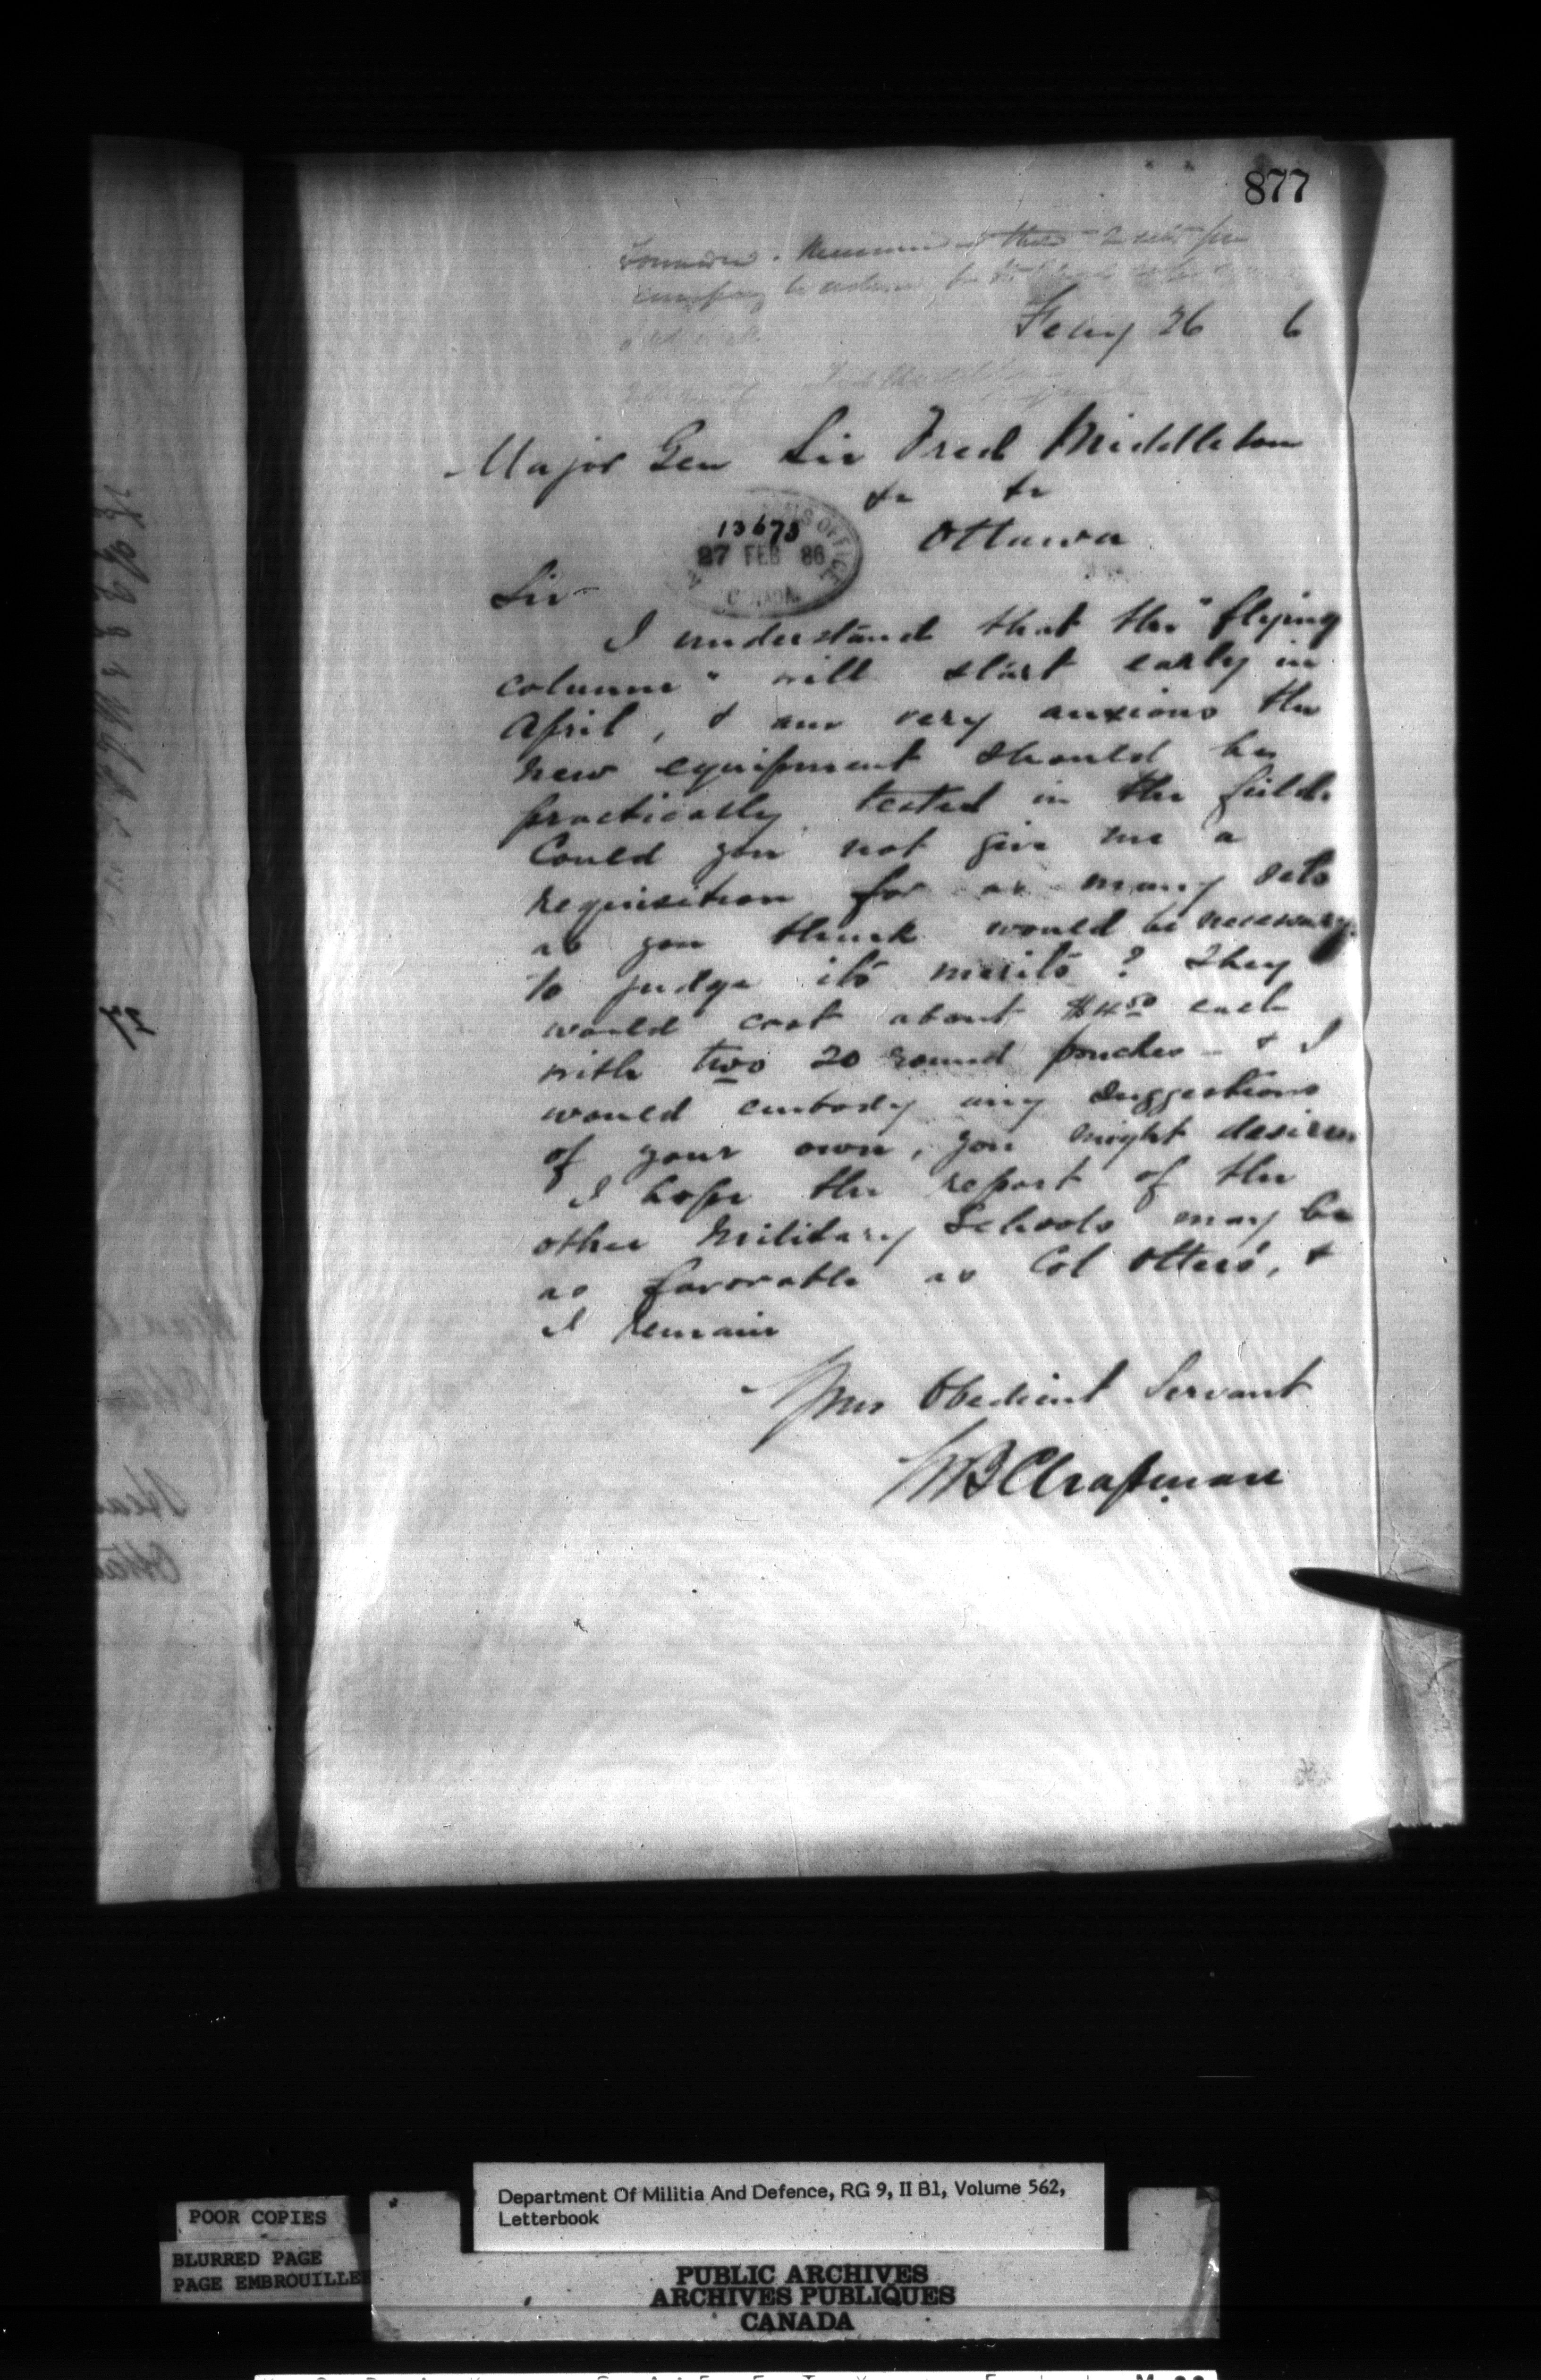 877
Feby 26 6
Major Gen Sir Fred Middleton
&c &c
Ottawa
13673
27 FEB 86
OFFICE
CANADA
Sir
I understand that the "flying
column" will start early in
April, & am very anxious the
new equipment should be
practically tested in the field.
Could you not give me a
requisition for as many sets
as you think would be necessary
to judge its merits? They
would cost about $4.50 each
with two 20 round pouches - & I
would embody any suggestions
of your own, you might desire.
I hope the report of the
other Military Schools may be
as favorable as Col Otters', &
I remain
Your Obedient Servant
WB Chapman
27
Department Of Militia And Defence, RG 9, II B1, Volume 562,
Letterbook
POOR COPIES
BLURRED PAGE
PAGE EMBROUILLE
PUBLIC ARCHIVES
ARCHIVES PUBLIQUES
CANADA